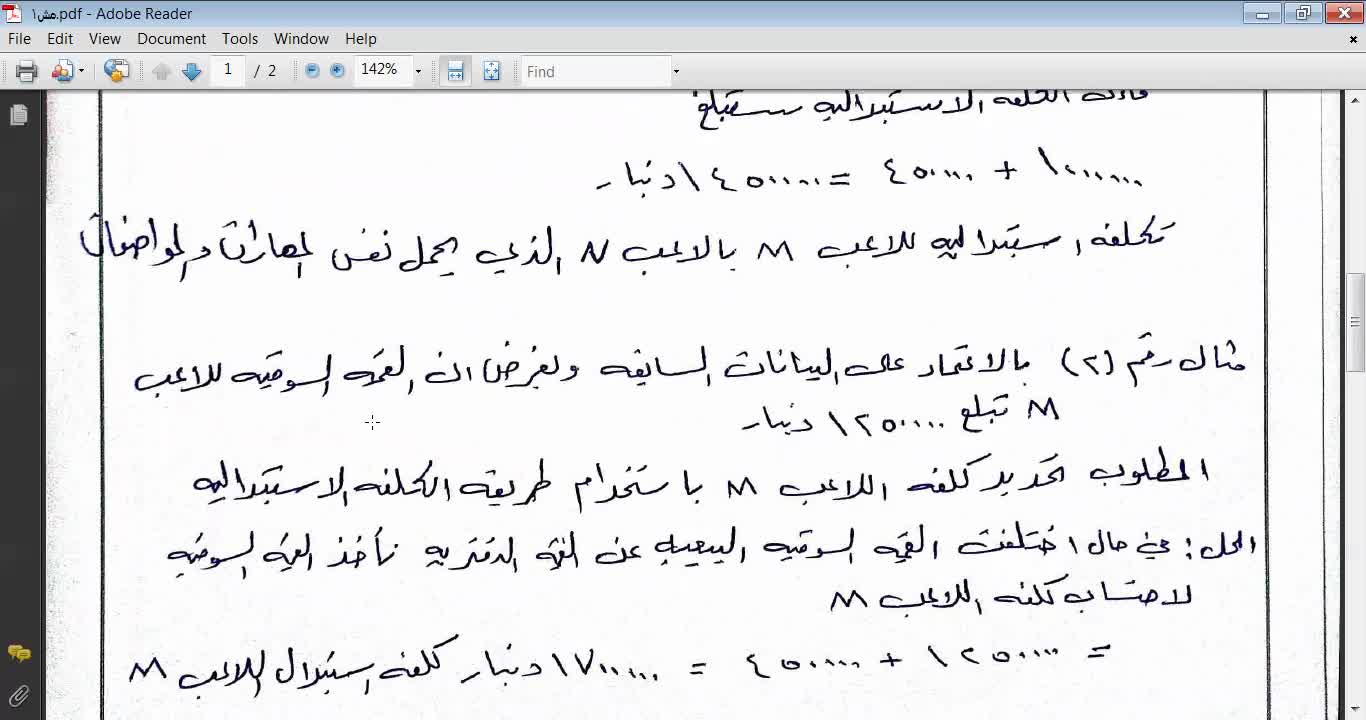 هش١.pdf - Adobe Reader
File Edit View Document Tools Window Help
1 / 2 142% Find
الكلفه الاستبداليه ستبلغ
١٠٠٠٠٠٠ + ٤٥٠٠٠٠ = ١٤٥٠٠٠٠ دنيار
تكلفه استبداليه للاعب M بالاعب N الذي يحمل نفس المهارات والمواصفات
مثال رقم (٢) بالاعتماد على البيانات السابقه وبفرض ان القيمه السوقيه للاعب
M تبلغ ١٢٥٠٠٠٠ دنيار
المطلوب تحديد كلفه اللاعب M باستخدام طريقه الكلفه الاستبداليه
الحل: في حال اختلفت القيمه السوقيه البيعيه عن القيمه الدفتريه نأخذ القيمه السوقيه
لاحتساب كلفه اللاعب M
= ١٢٥٠٠٠٠ + ٤٥٠٠٠٠ = ١٧٠٠٠٠٠ دنيار كلفه استبدال اللاعب M